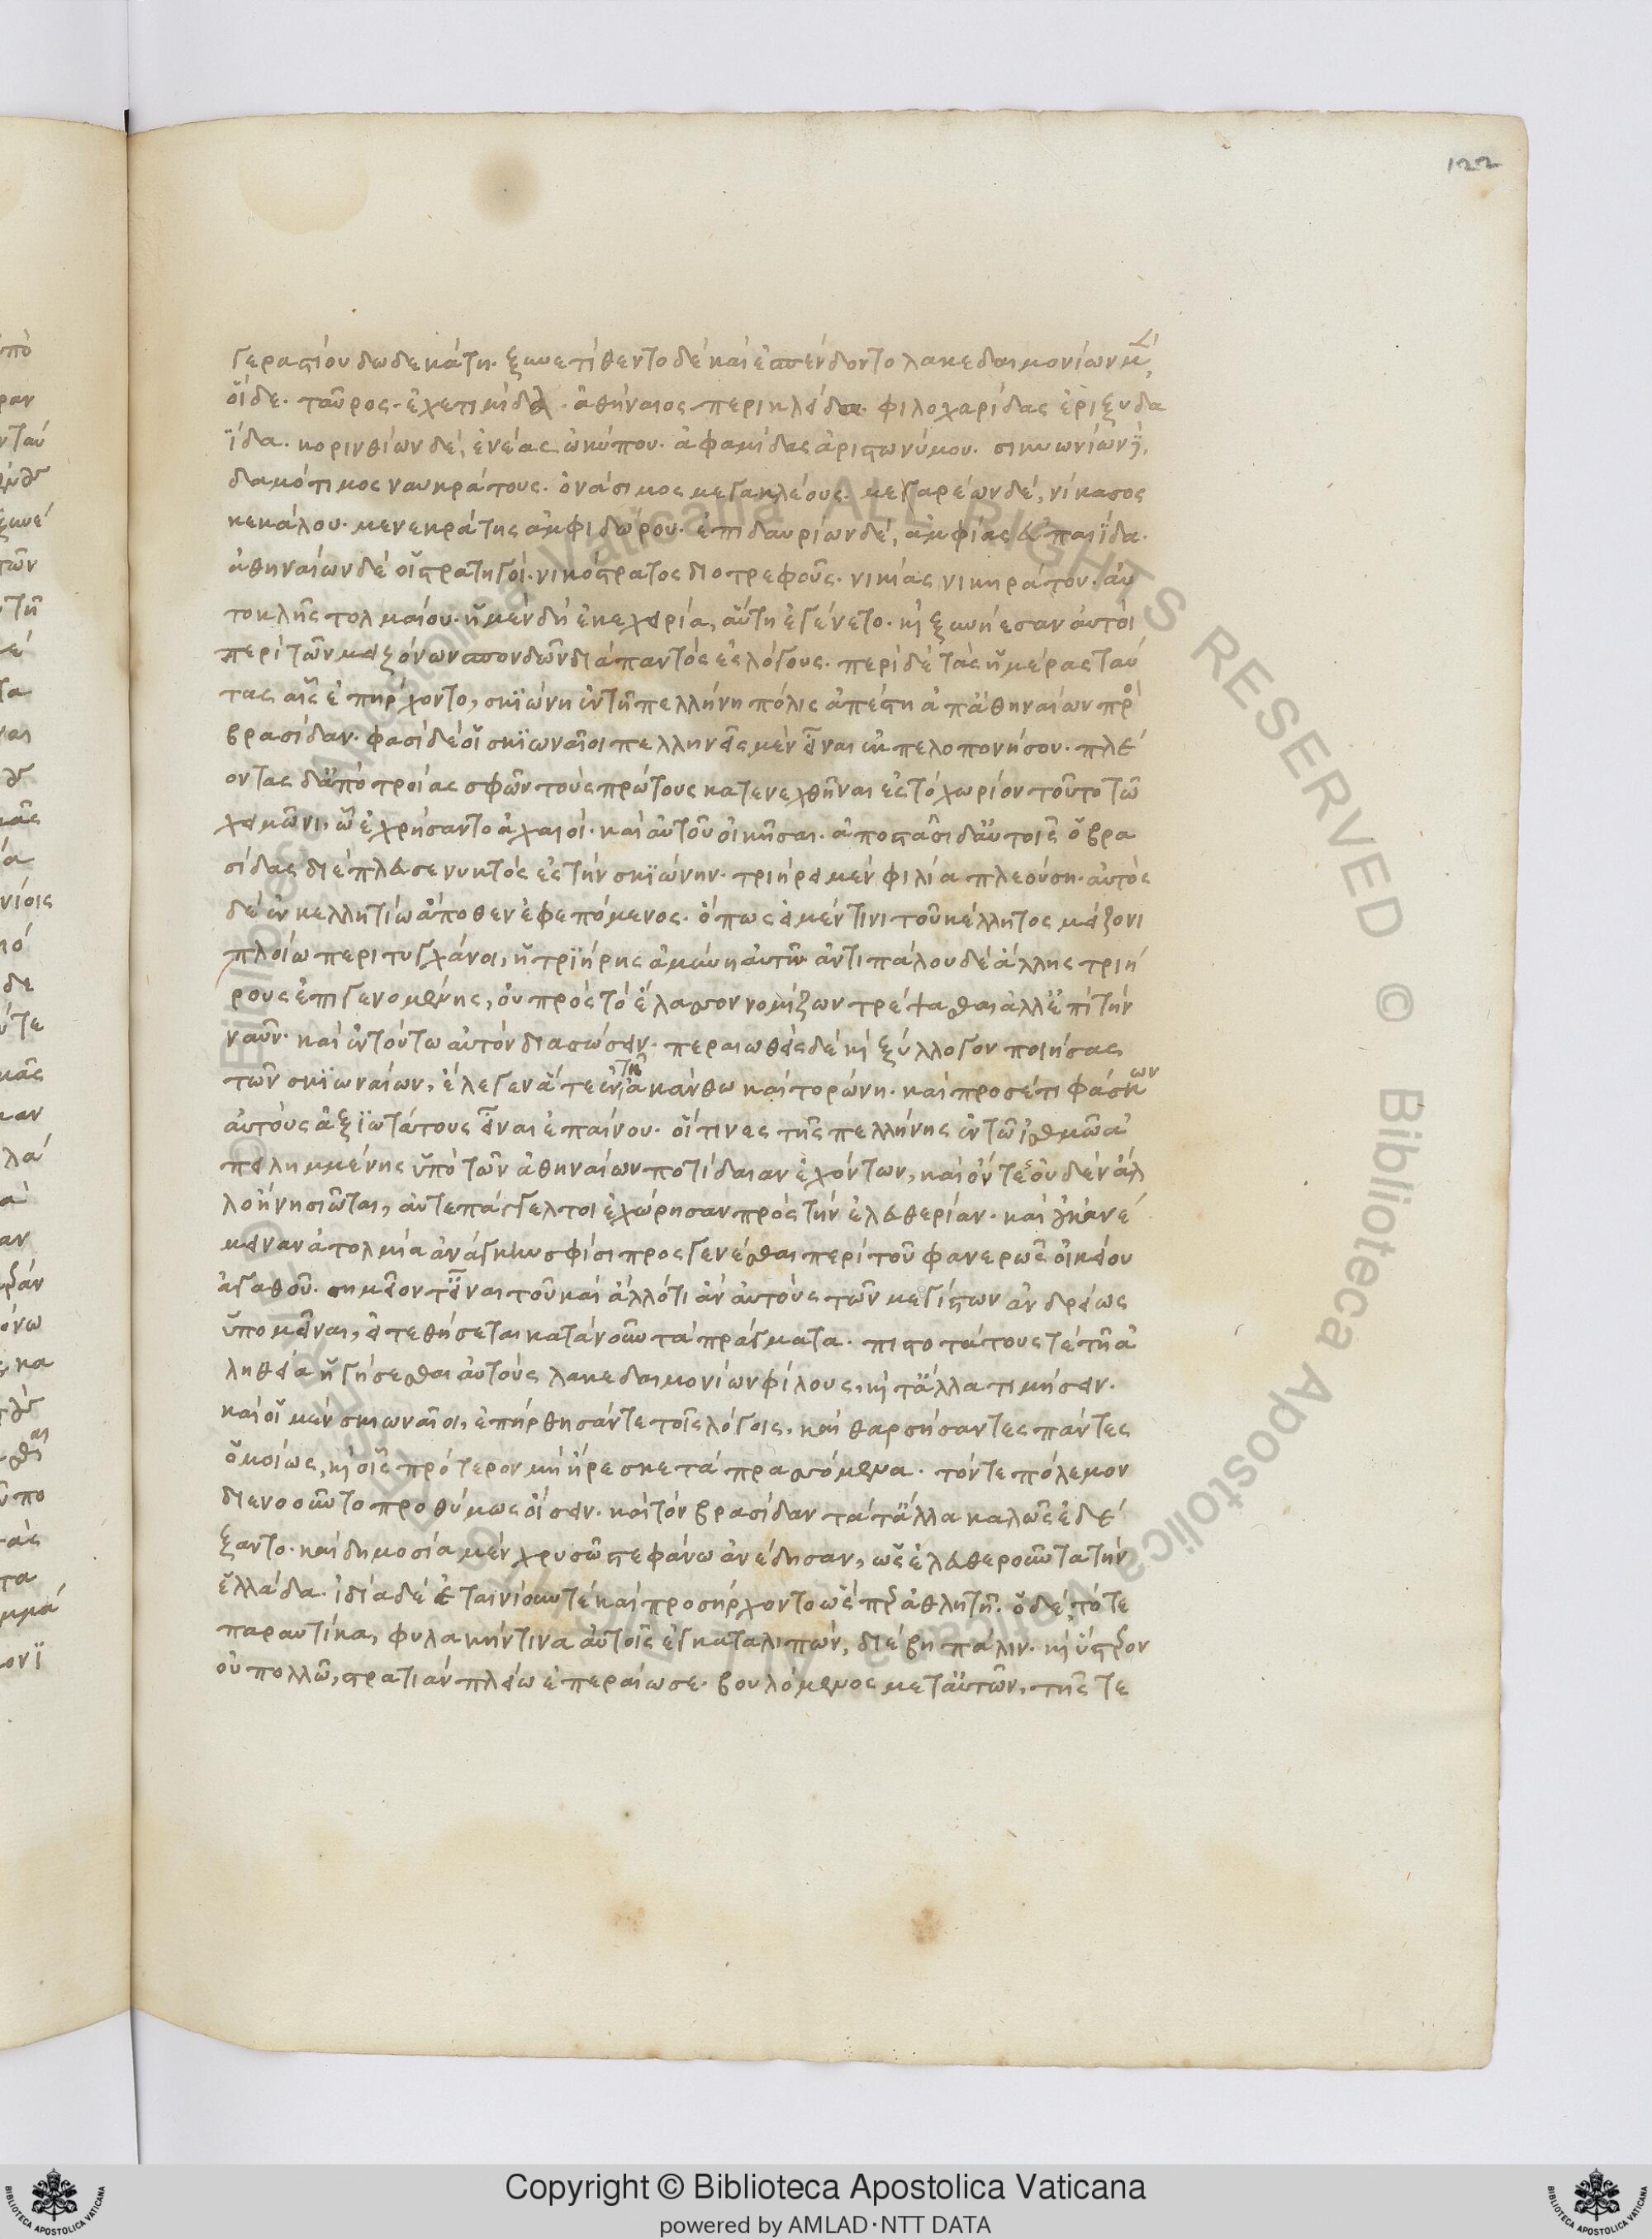 122
γεραστίου δωδεκάτη. ξυνετίθεντο δὲ καὶ ἐσπένδοντο λακεδαιμονίων μὲν,
οἵδε. ταῦρος ἐχετιμίδα. ἀθήναιος περικλείδα. φιλοχαρίδας ἐριξυδα
ΐδα. κορινθίων δὲ, ἐνέας ὠκύπου. ἐφαμίδας ἀριστωνύμου. σικυωνίων δὲ,
δαμότιμος ναυκράτους. ὀνάσιμος μεγακλέους. μεγαρέων δὲ, νίκασος
κεκάλου. μενεκράτης ἀμφιδώρου. ἐπιδαυρίων δὲ, ἀμφίας εὐπαιΐδα.
ἀθηναίων δὲ οἱ στρατηγοὶ. νικόστρατος διοτρεφοῦς. νικίας νικηράτου. αὐ
τοκλῆς τολμαίου. ἡ μὲν δὴ ἐκεχειρία, αὕτη ἐγένετο. καὶ ξυνῄεσαν αὐτοὶ
περὶ τῶν μειζόνων σπονδῶν διὰ παντὸς ἐς λόγους. περὶ δὲ τὰς ἡμέρας ταύ
τας αἷς ἐπήρχοντο, σκϊώνη ἐν τῇ πελλήνη πόλις ἀπέστη ἀπ' ἀθηναίων πρὸς
βρασίδαν. φασὶ δὲ οἱ σκϊωναῖοι πελληνεῖς μὲν εἶναι ἐκ πελοπονήσου. πλέ
οντας δ' ἀπὸ τροίας σφῶν τοὺς πρώτους κατενεχθῆναι ἐς τὸ χωρίον τοῦτο τῶ
χειμῶνι, ὧ ἐχρήσαντο ἀχαιοὶ. καὶ αὐτοῦ οἰκῆσαι. ἀποστᾶσι δ' αὐτοῖς ὁ βρα
σίδας διέπλευσε νυκτὸς ἐς τὴν σκϊώνην. τριήρει μὲν φιλία πλεούση. αὐτὸς
δὲ ἐν κελλητίω ἄποθεν ἐφεπόμενος. ὅπως εἰ μέν τινι τοῦ κέλλητος μείζονι
πλοίω περιτυγχάνοι, ἡ τριήρης ἀμύνη αὐτῶ. ἀντιπάλου δὲ ἄλλης τριή
ρους ἐπιγενομένης, οὐ πρὸς τὸ ἔλασσον νομίζων τρέψασθαι ἀλλ' ἐπὶ τὴν
ναῦν. καὶ ἐν τούτω αὐτὸν διασώσειν. περαιωθεὶς δὲ καὶ ξύλλογον ποιήσας
τῶν σκϊωναίων, ἔλεγεν ἅ τε ἐν τῇ ἀκάνθω καὶ τορώνη. καὶ προσέτι φάσκων
αὐτοὺς ἀξϊωτάτους εἶναι ἐπαίνου. οἵτινες τῆς πελλήνης ἐν τῶ ἰσθμῶ ἀ
πειλημμένης ὑπὸ τῶν ἀθηναίων ποτίδαιαν ἐχόντων, καὶ ὄντες οὐδὲν ἄλ
λο ἢ νησιῶται, αὐτεπάγγελτοι ἐχώρησαν πρὸς τὴν ἐλευθερίαν. καὶ οὐκ ἀνέ
μειναν ἀτολμία ἀνάγκην σφίσι προσγενέσθαι περὶ τοῦ φανερῶς οἰκείου
ἀγαθοῦ. σημεῖόν τ' εἶναι τοῦ καὶ ἄλλό τι ἂν αὐτοὺς τῶν μεγίστων ἀνδρείως
ὑπομεῖναι, εἰ τεθήσεται κατὰ νοῦν τὰ πράγματα. πιστοτάτους τὲ τῇ ἀ
ληθεία ἡγήσεσθαι αὐτοὺς λακεδαιμονίων φίλους, καὶ τἄλλα τιμήσειν.
καὶ οἱ μὲν σκιωναῖοι, ἐπήρθησάν τε τοῖς λόγοις, καὶ θαρσήσαντες πάντες
ὁμοίως, καὶ οἷς πρότερον μὴ ἤρεσκε τὰ πρασσόμενα. τόν τε πόλεμον
διενοοῦντο προθύμως οἴσειν. καὶ τὸν βρασίδαν τά τ' ἄλλα καλῶς ἐδέ
ξαντο. καὶ δημοσία μὲν χρυσῶ στεφάνω ἀνέδησαν, ὡς ἐλευθεροῦντα τὴν
ἑλλάδα. ἰδία δὲ ἐταινίουν τὲ καὶ προσήρχοντο ὡς πρ ἀθλητῆ. ὁ δὲ, τό τε
παραυτίκα, φυλακήν τινα αὐτοῖς ἐγκαταλιπὼν, διέβη πάλιν. καὶ ὕστερον
οὐ πολλῶ, στρατιὰν πλείω ἐπεραίωσε. βουλόμενος μετ' αὐτῶν, τῆς τε
© Biblioteca Apostolica Vaticana ALL RIGHTS RESERVED
Copyright © Biblioteca Apostolica Vaticana
powered by AMLAD·NTT DATA